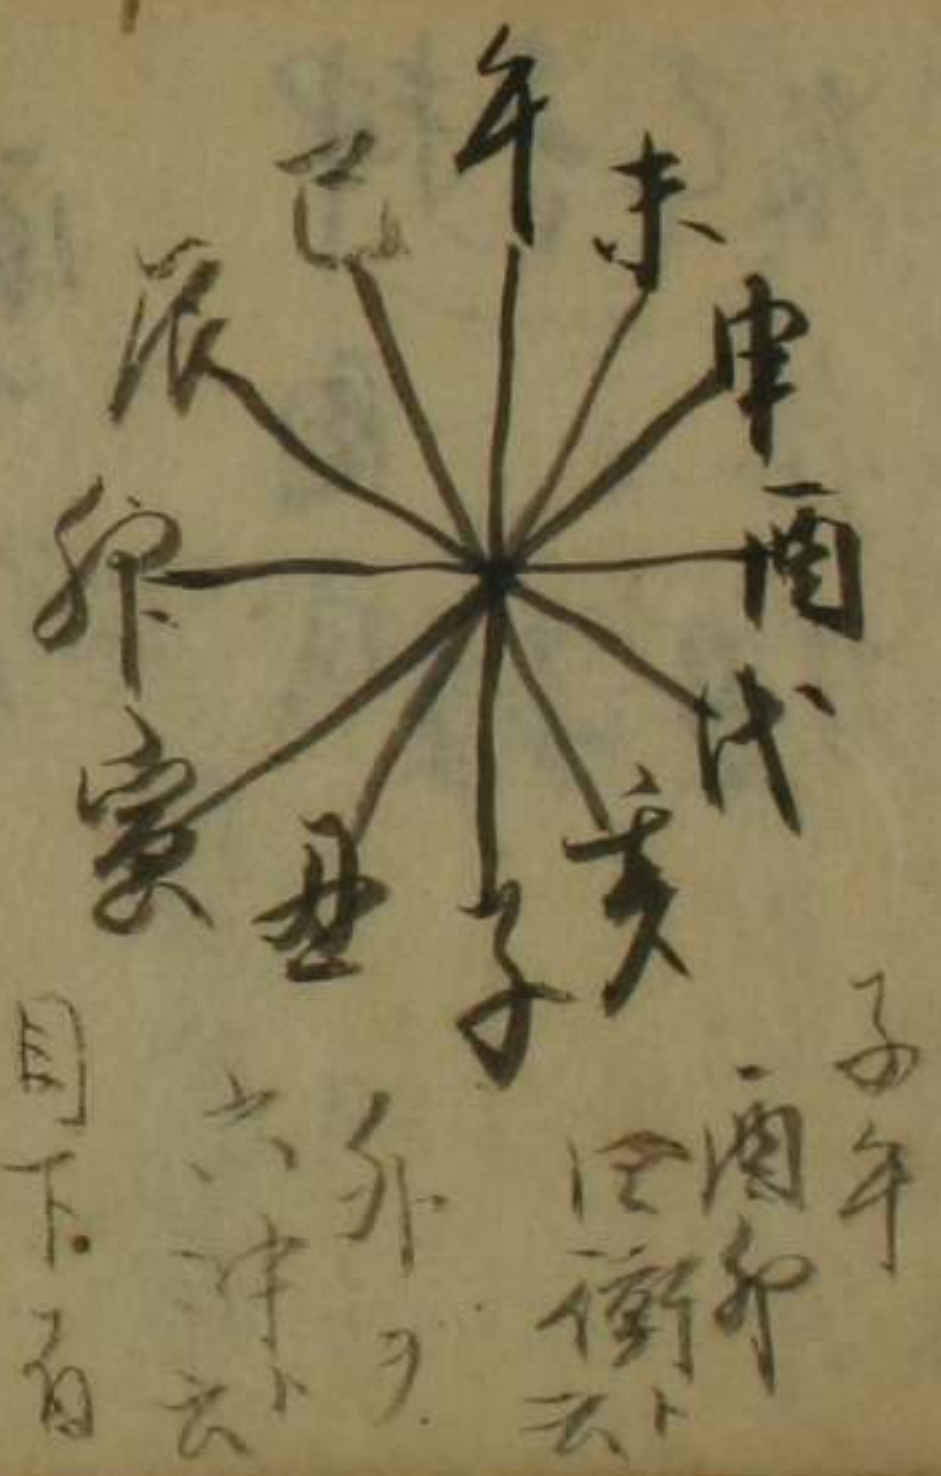 午
未
申
酉
戌
亥
子
丑
寅
卯
辰
巳
子午
酉卯
四衝ト
云
外ヲ
六冲ト
云
目下